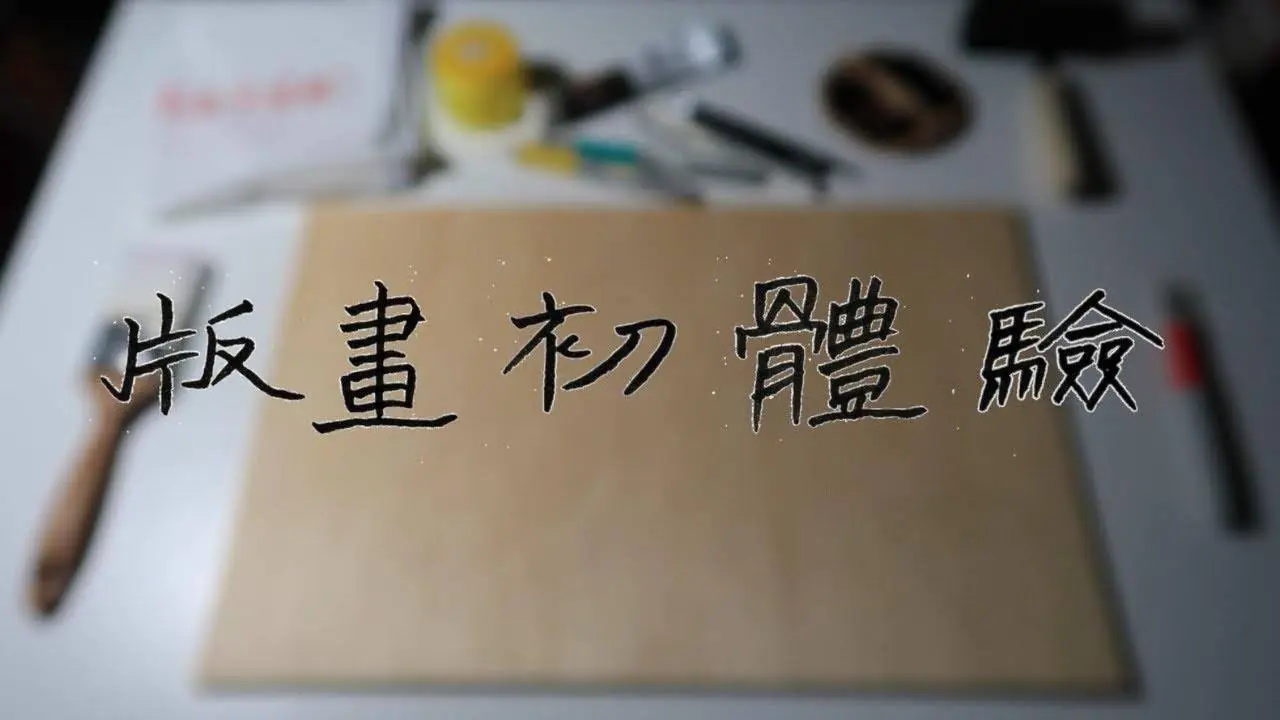 版畫初體驗